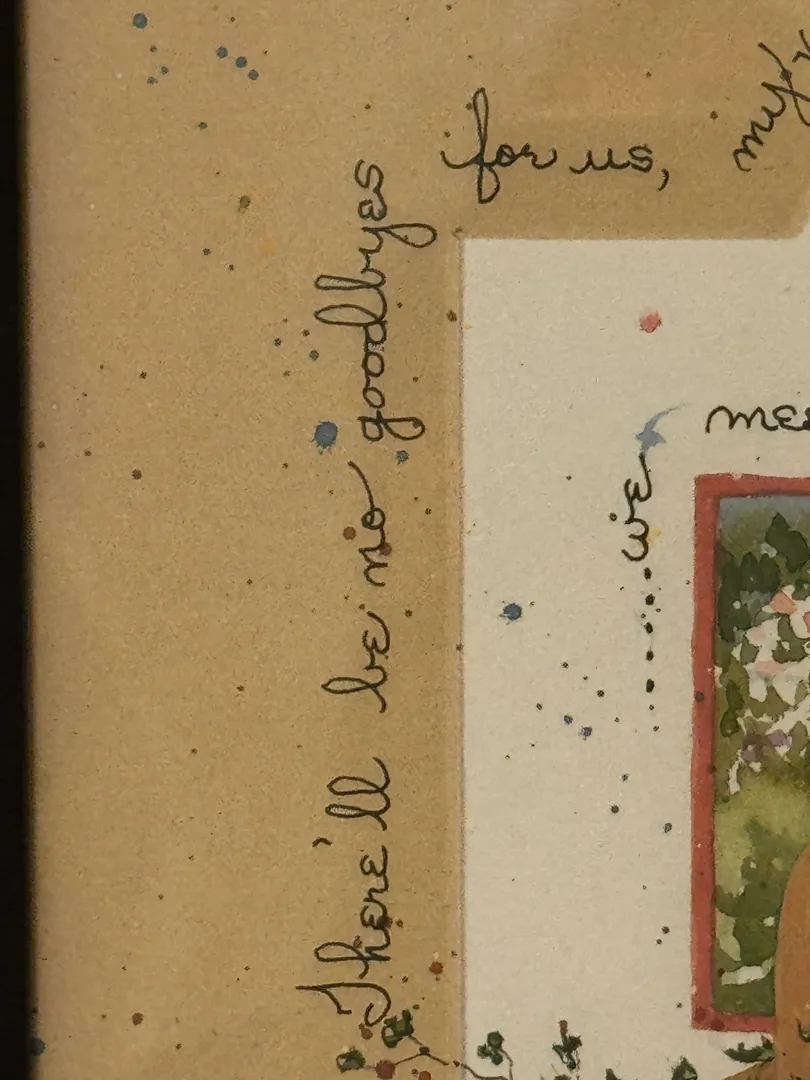 There'll be no goodbyes
for us, my
......we